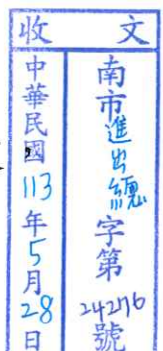 收文
南市進出總字第24276號
中華民國113年5月28日